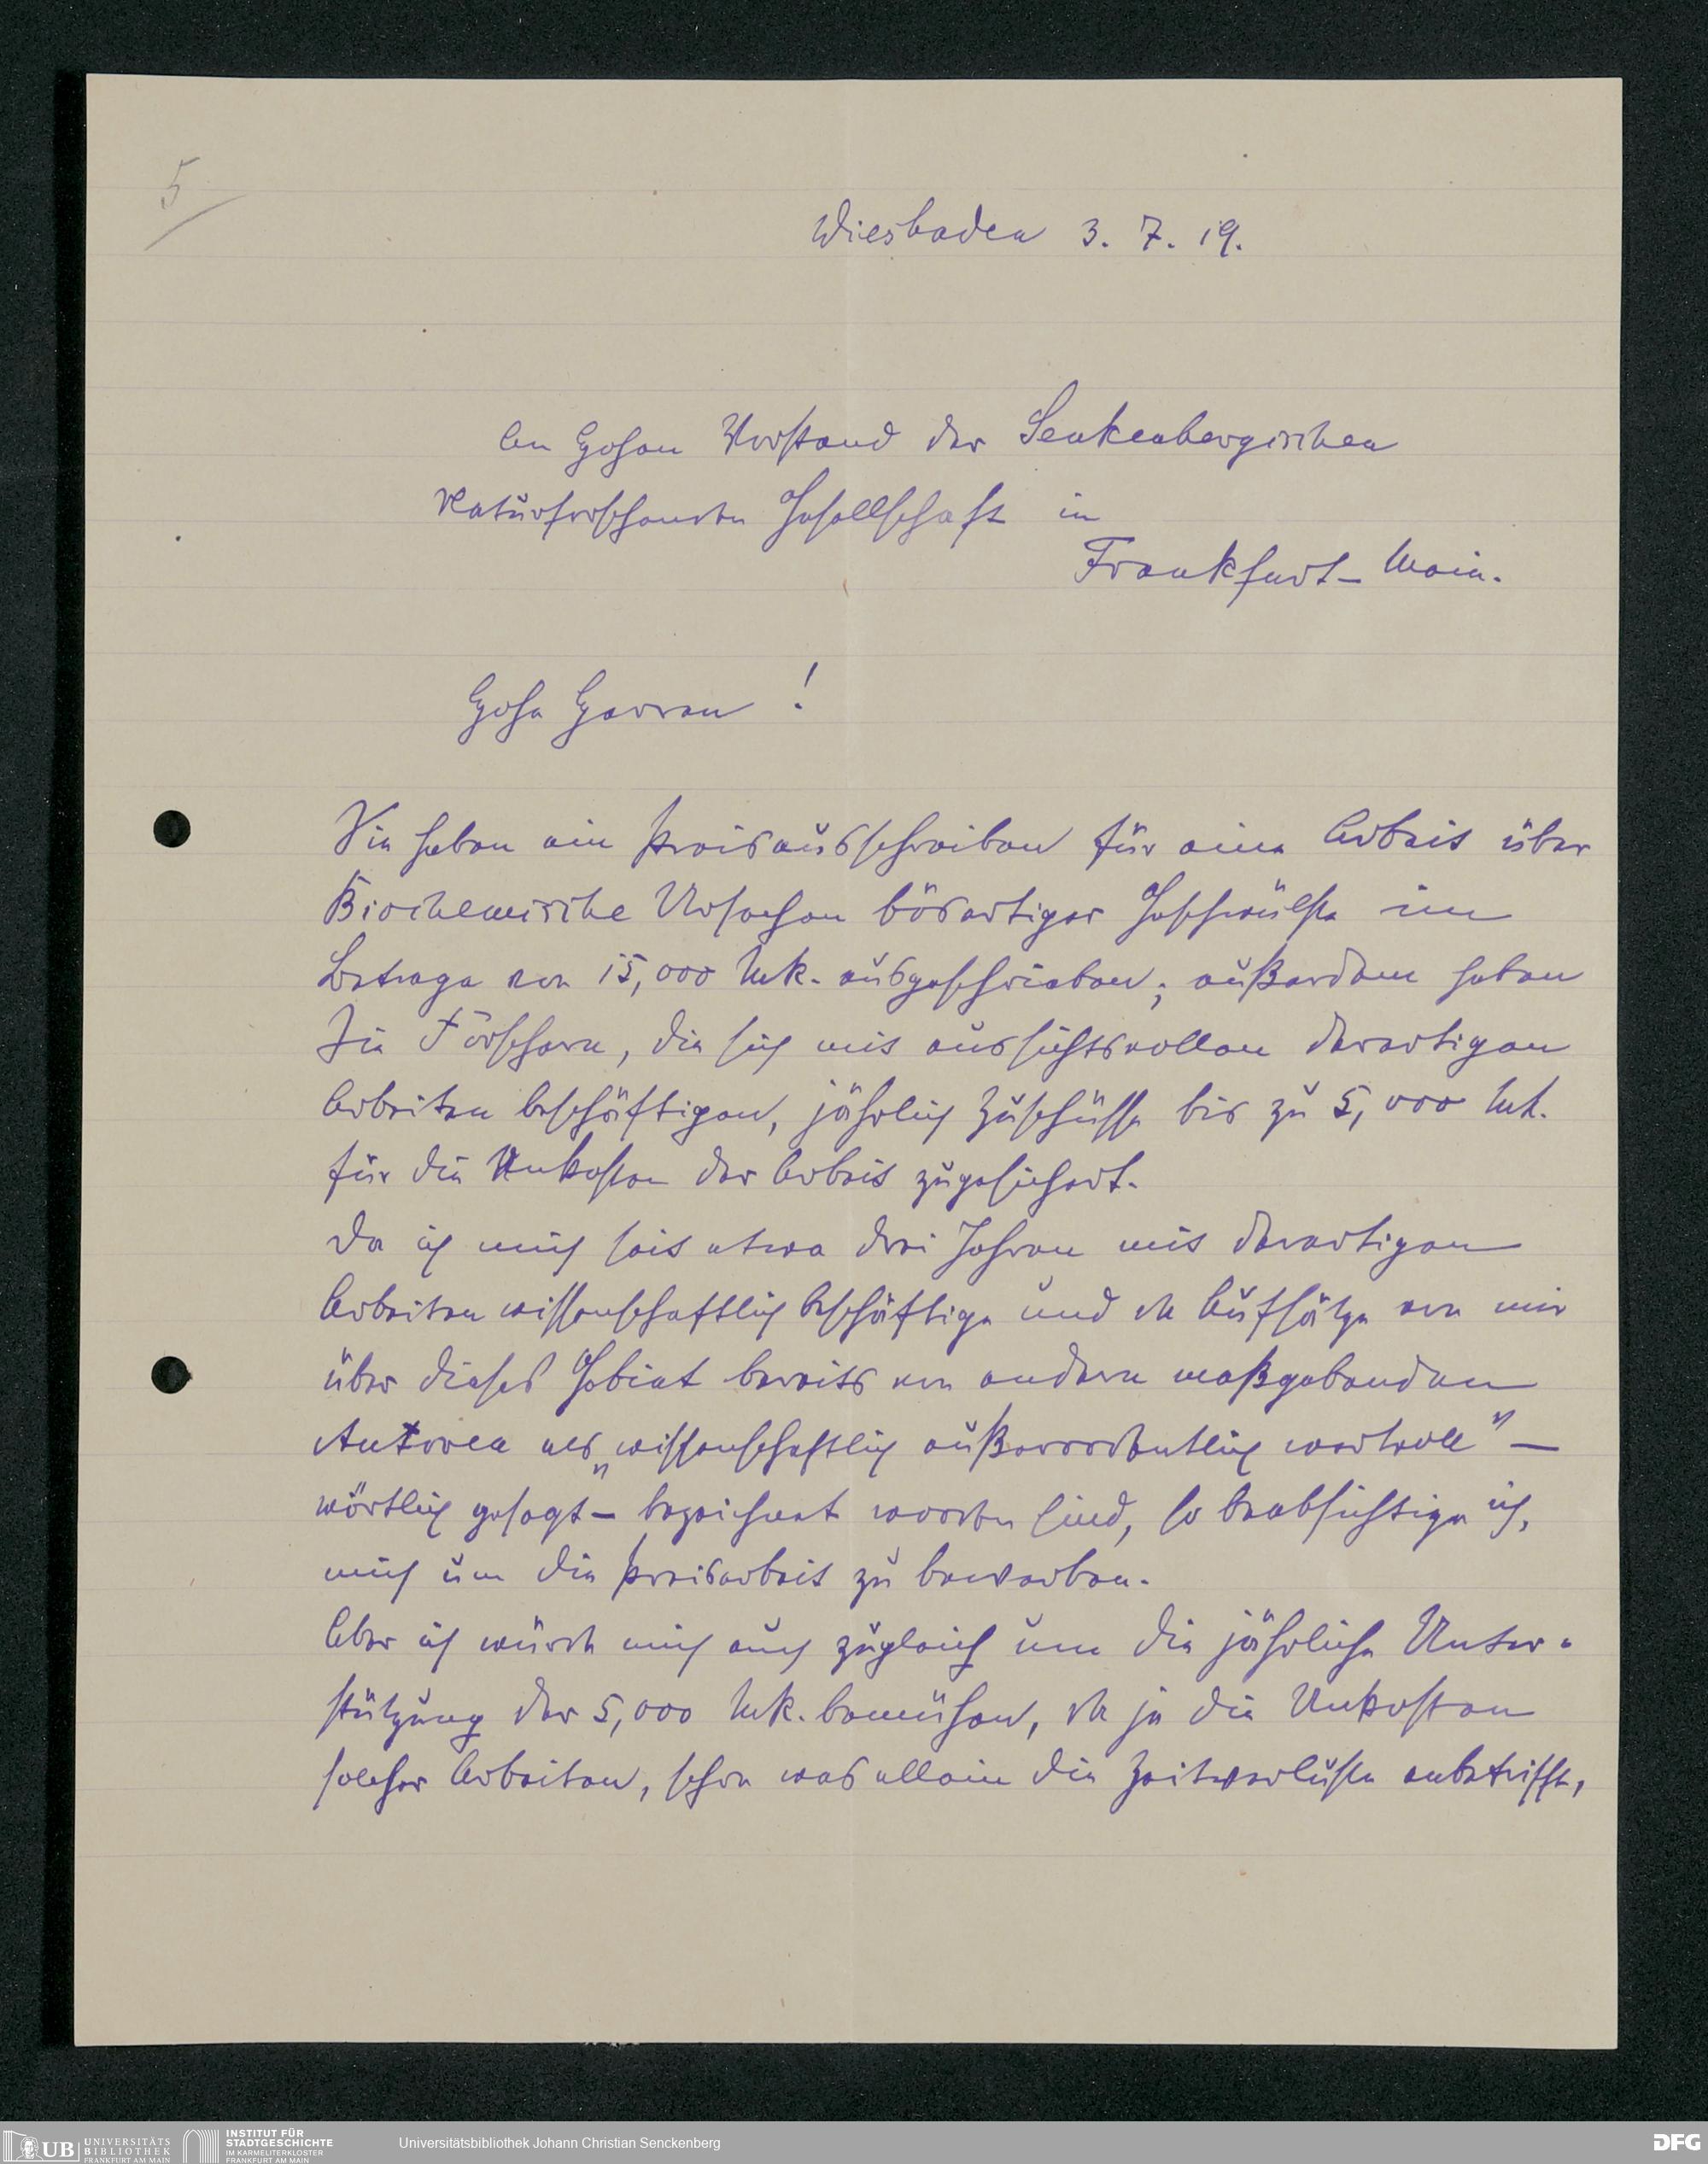 5
Wiesbaden 3. 7. 19.
An Hohen Vorstand der Senkenbergischen
Naturforschenden Gesellschaft in
Frankfurt-Main.
Hohe Herren!
Sie haben ein Preisausschreiben für eine Arbeit über
Biochemische Ursachen bösartiger Geschwülste im
Betrage von 15,000 Mk. ausgeschrieben; außerdem haben
Sie Forschern, die sich mit aussichtsvollen derartigen
Arbeiten beschäftigen, jährlich Zuschüsse bis zu 5,000 Mk.
für die Unkosten der Arbeit zugesichert.
Da ich mich seit etwa drei Jahren mit derartigen
Arbeiten wissenschaftlich beschäftige und da Aufsätze von mir
über dieses Gebiet bereits von andern maßgebenden
Autoren als „wissenschaftlich außerordentlich wertvoll" –
wörtlich gesagt – bezeichnet worden sind, so beabsichtige ich,
mich um die Preisarbeit zu bewerben.
Aber ich würde mich auch zugleich um die jährliche Unter-
stützung der 5,000 Mk. bemühen, da ja die Unkosten
solcher Arbeiten, schon was allein die Zeitverluste anbetrifft,
UB UNIVERSITÄTS
BIBLIOTHEK
FRANKFURT AM MAIN
INSTITUT FÜR
STADTGESCHICHTE
IM KARMELITERKLOSTER
FRANKFURT AM MAIN
Universitätsbibliothek Johann Christian Senckenberg
DFG